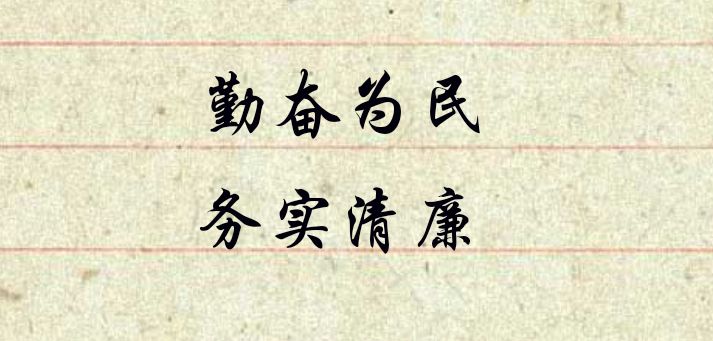 勤奋为民
务实清廉